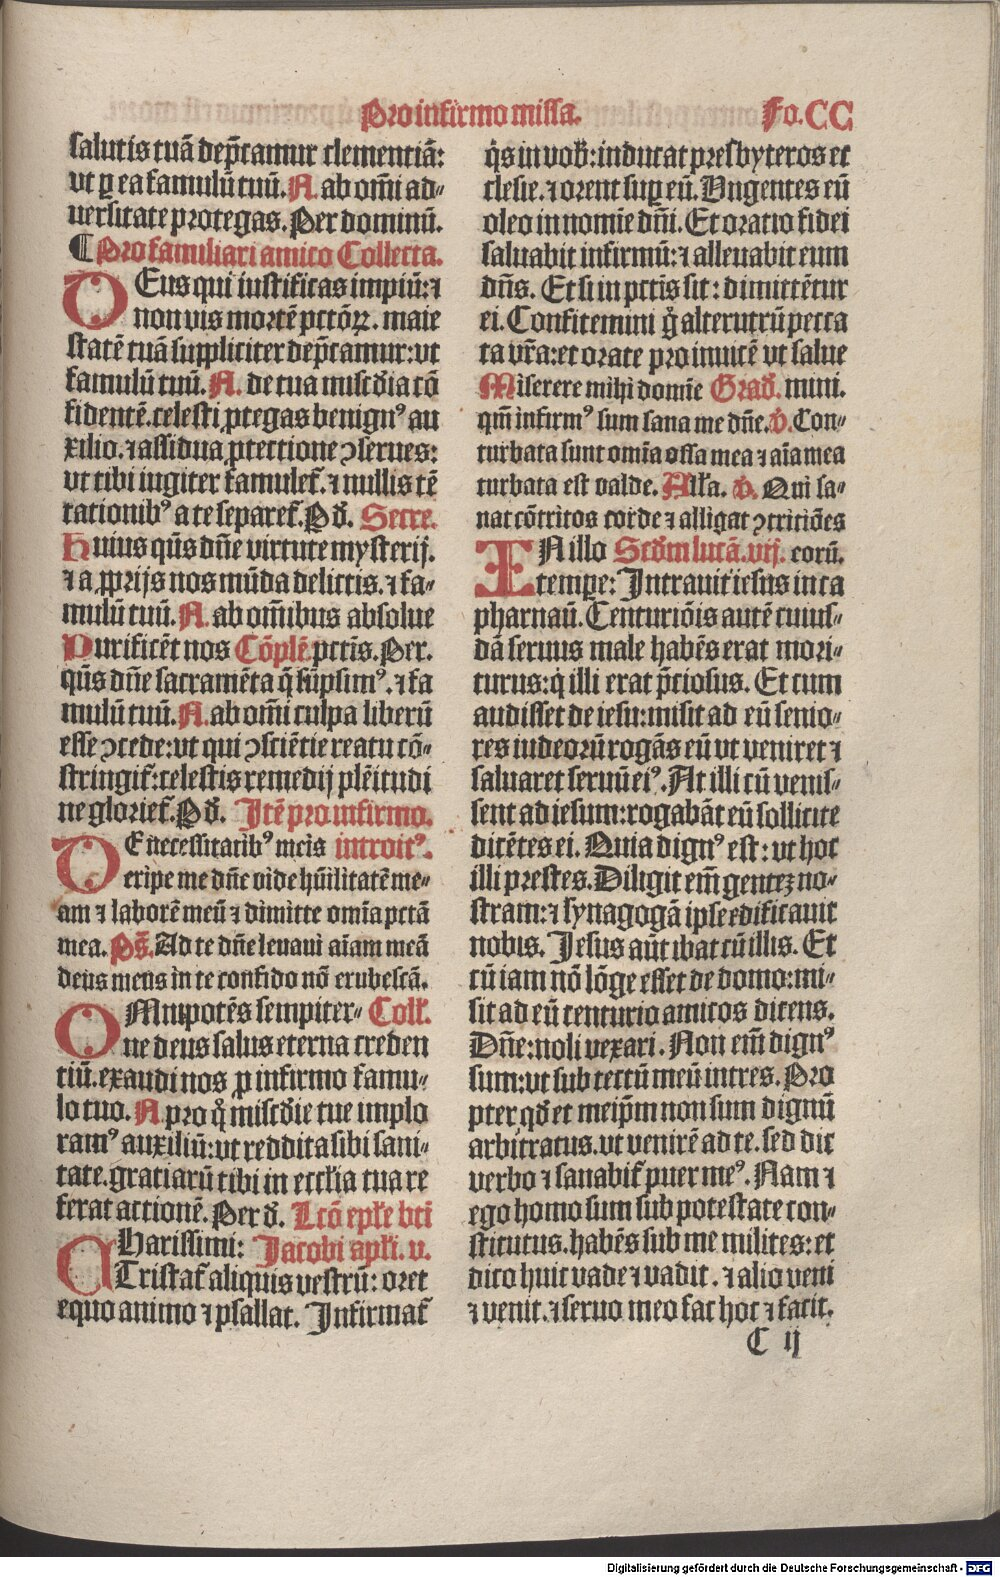 Pro infirmo missa. Fo. CC
salutis tuā dep̄camur clementiā:
vt ꝑ ea famulū tuū. N. ab om̄i ad-
uersitate protegas. Per dominū.
¶ Pro familiari amico Collecta.
DEus qui iustificas impiū: ⁊
non vis mortē pctōꝝ. maie
statē tuā suppliciter dep̄camur: vt
famulū tuū. N. de tua mis̄cdia cō
fidentē. celesti ꝓtegas benignꝰ au
xilio. ⁊ assidua ꝓtectione ↄserues:
vt tibi iugiter famuleť. ⁊ nullis tē
rationibꝰ a te separeť. P̄ d̄. Secre.
Huius q̄s dn̄e virtute mysterij.
⁊ a ꝓprijs nos mūda delictis. ⁊ fa-
mulū tuū. N. ab om̄ibus absolue
Purificēt nos Cōplē. pctīs. Per.
q̄s dn̄e sacramēta q̄ sūpsimꝰ. ⁊ fa
mulū tuū. N. ab om̄i culpa liberū
esse ↄcede: vt qui ↄsciētie reatu cō-
stringiť: celestis remedij plēitudi
ne glorieť. P̄ d̄. Itē pro infirmo.
DE necessitatibꝰ meis introitꝰ.
eripe me dn̄e vide hūilitatē me-
am ⁊ laborē meū ⁊ dimitte omīa pctā
mea. Ps̄. Ad te dn̄e leuaui aīam meā
deus meus in te confido nō erubescā.
OMnipotēs sempiter- Coll̄.
ne deus salus eterna creden
tiū. exaudi nos ꝓ infirmo famu-
lo tuo. N. pro q̊ mis̄cdie tue implo
ramꝰ auxiliū: vt reddita sibi sani-
tate. gratiarū tibi in eccl̄ia tua re
ferat actionē. Per d̄. Lcō ep̄le bt̄i
CHarissimi: Jacobi apl̄i. v.
Tristať aliquis vestrū: oret
equo animo ⁊ psallat. Infirmať
q̄s in vob̄: inducat presbyteros ec
clesie. ⁊ orent suꝑ eū. Vngentes eū
oleo in nomīe dn̄i. Et oratio fidei
saluabit infirmū: ⁊ alleuabit eum
dn̄s. Et si in pctīs sit: dimittētur
ei. Confitemini g̊ alterutrū pecca
ta vr̄a: et orate pro inuicē vt salue
Miserere mihi domīe Grad̄. mini.
qm̄ infirmꝰ sum sana me dn̄e. V̄. Con-
turbata sunt omīa ossa mea ⁊ aīa mea
turbata est valde. All̄a. V̄. Qui sa-
nat cōtritos corde ⁊ alligat ↄtritiōes
IN illo Scd̄m lucā. vij. eorū.
tempe: Intrauit iesus in ca
pharnaū. Centuriōis autē cuius-
dā seruus male habēs erat mori-
turus: q̇ illi erat p̄ciosus. Et cum
audisset de iesu: misit ad eū senio-
res iudeorū rogās eū vt veniret ⁊
saluaret seruū eiꝰ. At illi cū venis-
sent ad iesum: rogabāt eū sollicite
dicētes ei. Quia dignꝰ est: vt hoc
illi prestes. Diligit em̄ gentez no-
stram: ⁊ synagogā ipse edificauit
nobis. Jesus aūt ibat cū illis. Et
cū iam nō lōge esset de domo: mi-
sit ad eū centurio amicos dicens.
Dn̄e: noli vexari. Non em̄ dignꝰ
sum: vt sub tectū meū intres. Pro
pter qd̄ et meip̄m non sum dignū
arbitratus. vt venirē ad te. sed dic
verbo ⁊ sanabiť puer meꝰ. Nam ⁊
ego homo sum sub potestate con-
stitutus. habēs sub me milites: et
dico huic vade ⁊ vadit. ⁊ alio veni
⁊ venit. ⁊ seruo meo fac hoc ⁊ facit.
C ij
Digitalisierung gefördert durch die Deutsche Forschungsgemeinschaft - DFG